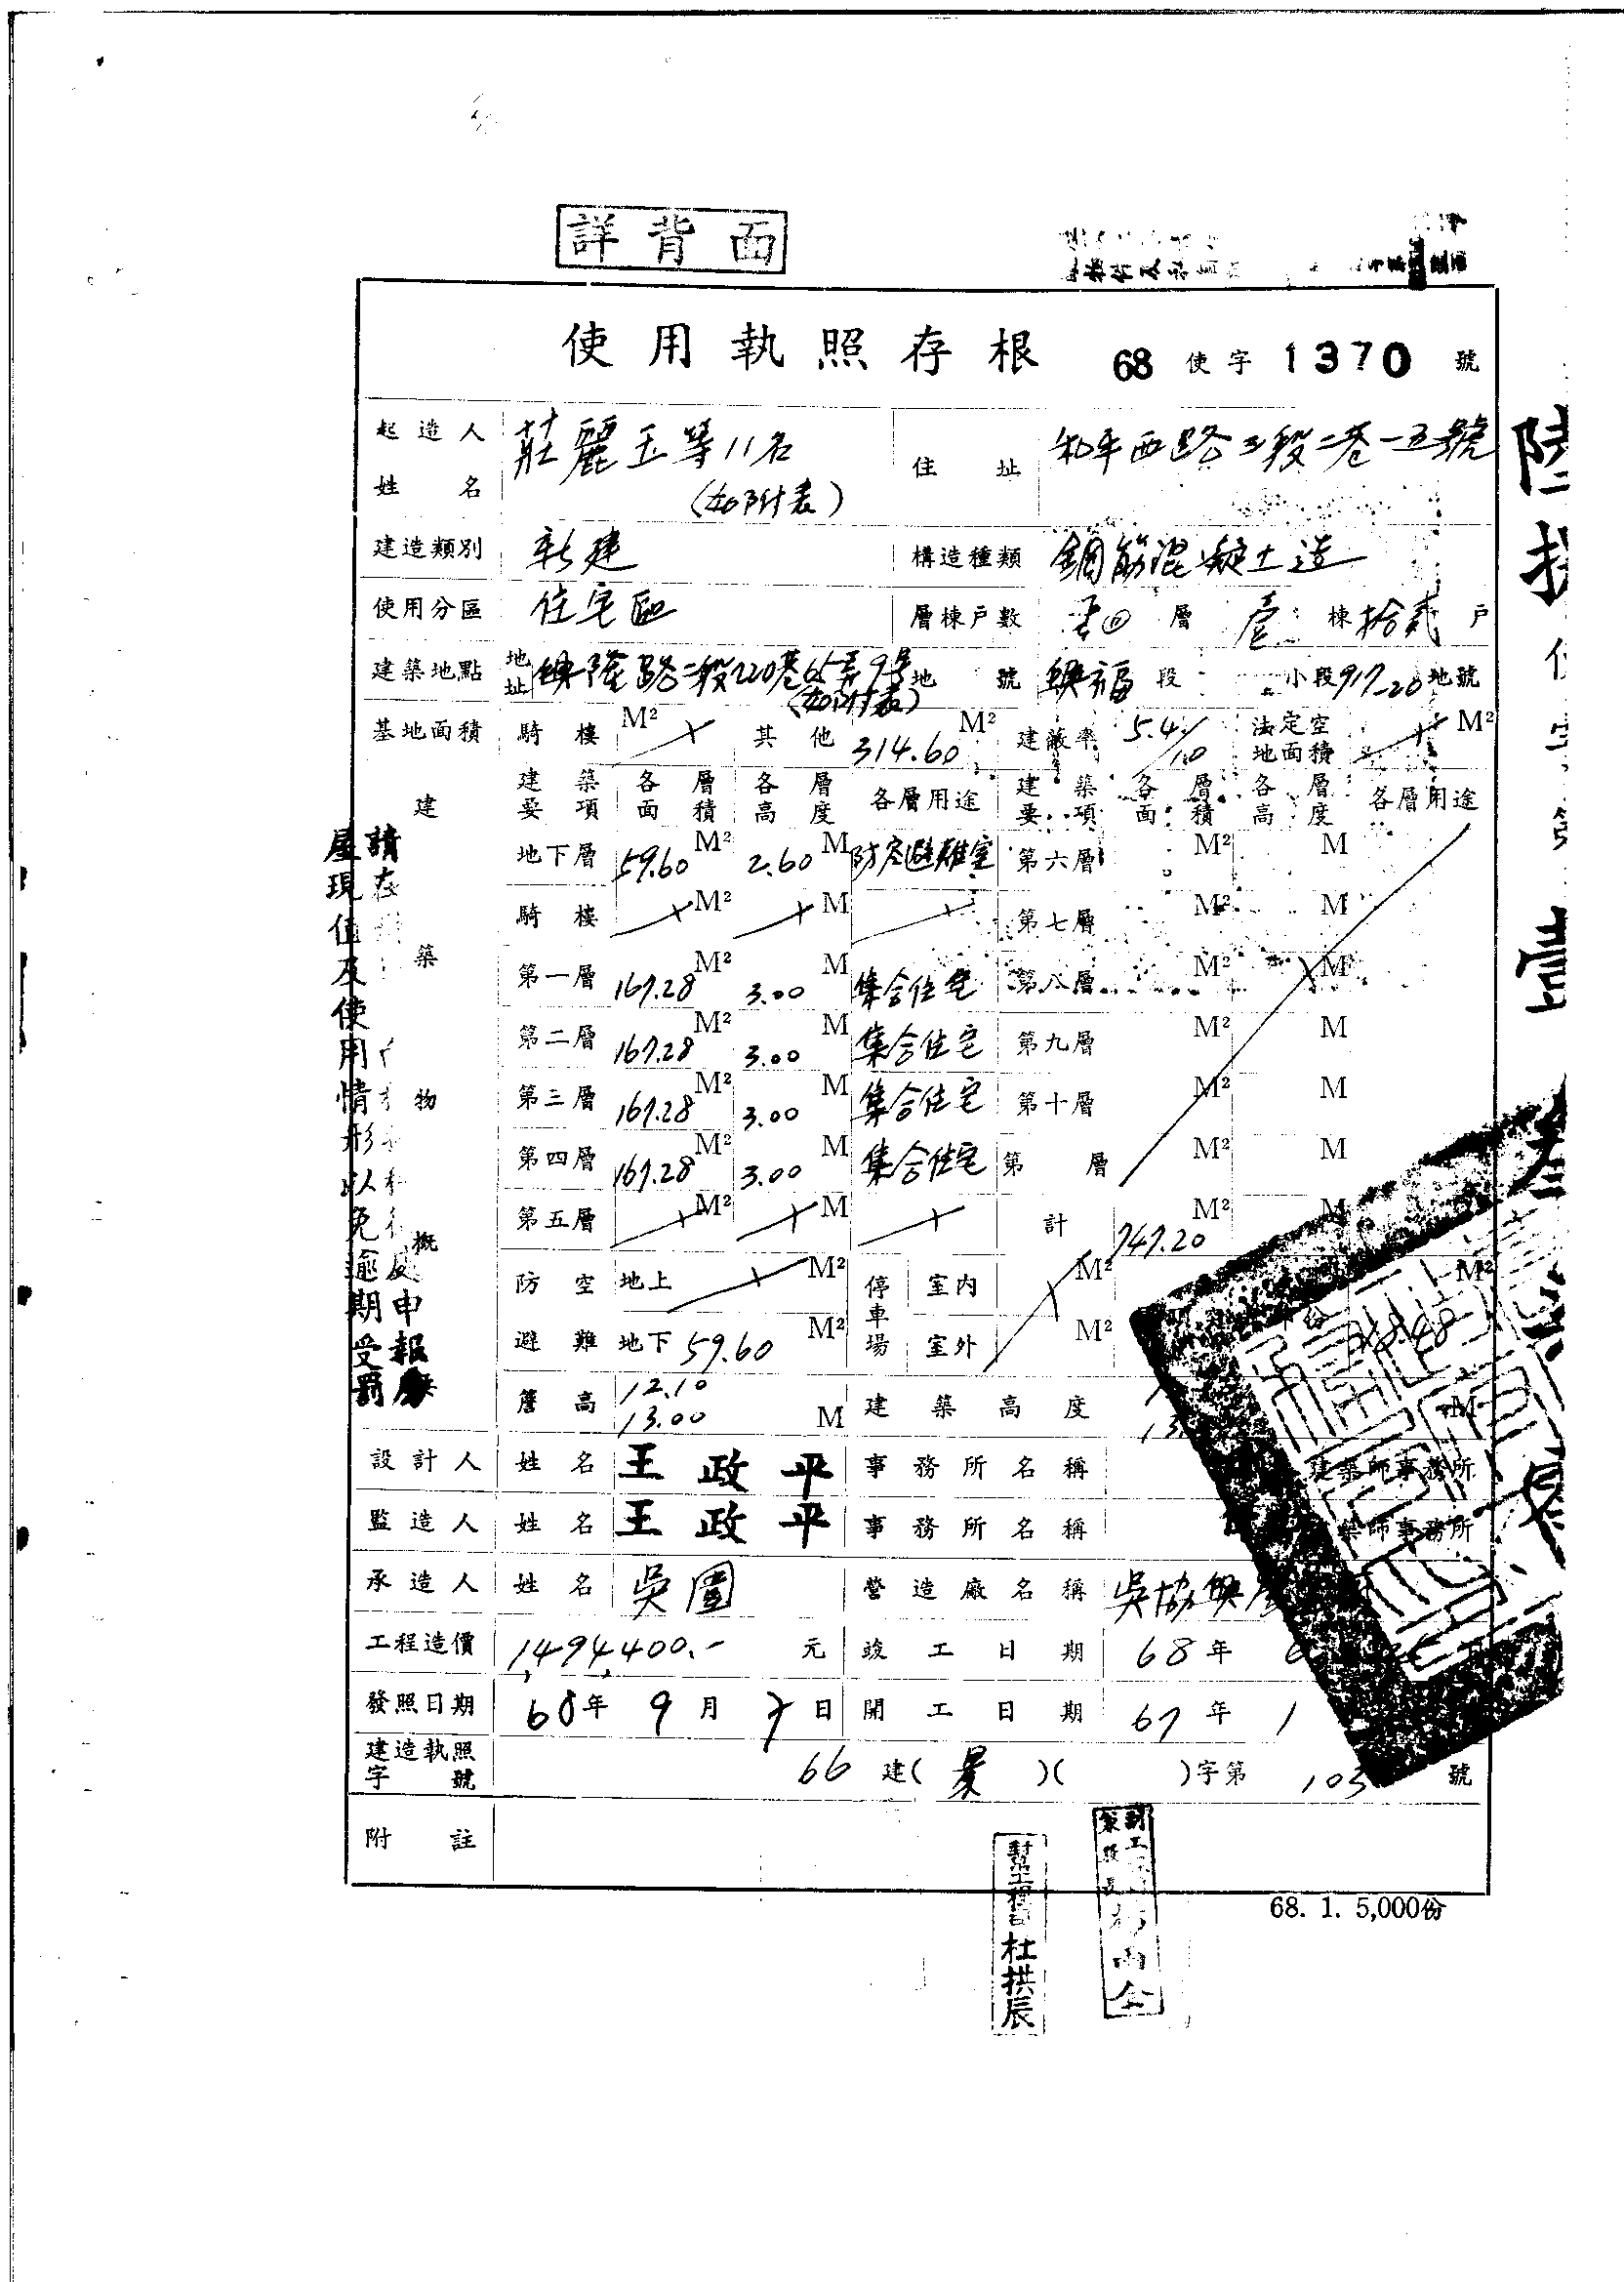 詳背面
使用執照存根 68 使字 1370 號
起造人姓名 莊麗玉等11名 (如附表) 住址 和平西路三段二巷一五號
建造類別 新建 構造種類 鋼筋混凝土造
使用分區 住宅區 層棟戶數 層 壹 棟 拾貳 戶
建築地點 地址 興隆路二段220巷65弄9號 (如附表) 地號 興福 段 小段 917-20 地號
基地面積 騎樓 M² 其他 314.60 M² 建蔽率 5.4/10 法定空地面積 M²
建築物概要
建築要項 各層面積 各層高度 各層用途 建築要項 各層面積 各層高度 各層用途
地下層 59.60 M² 2.60 M 防空避難室 第六層 M² M
騎樓 M² M 第七層 M² M
第一層 167.28 M² 3.00 M 集合住宅 第八層 M² M
第二層 167.28 M² 3.00 M 集合住宅 第九層 M² M
第三層 167.28 M² 3.00 M 集合住宅 第十層 M² M
第四層 167.28 M² 3.00 M 集合住宅 第 層 M² M
第五層 M² M 計 747.20 M² M
防空避難 地上 M² 停車場 室內 M² M²
地下 59.60 M² 室外 M²
簷高 12.10 13.00 M 建築高度 M
設計人 姓名 王政平 事務所名稱 建築師事務所
監造人 姓名 王政平 事務所名稱 築師事務所
承造人 姓名 吳圍 營造廠名稱 吳協興
工程造價 1,494,400.- 元 竣工日期 68年
發照日期 68年 9月 7日 開工日期 67年 1
建造執照字號 66 建( 景 )( )字第 103 號
附註
68. 1. 5,000份
杜拱辰
屋現值及使用情形以免逾期受罰